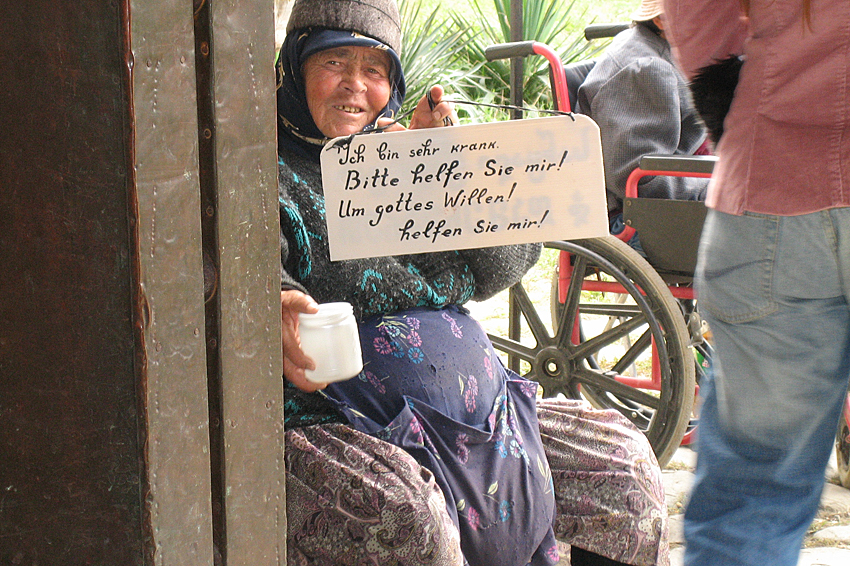 Ich bin sehr krank.
Bitte helfen Sie mir!
Um gottes Willen!
helfen Sie mir!